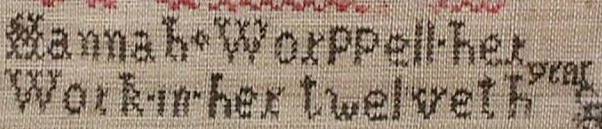 Hannah Worppell her
Work in her twelveth year